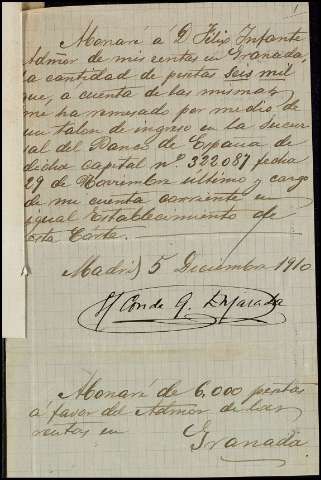 1
Abonaré á D. Félix Infante
Admõr de mis rentas en Granada,
la cantidad de pesetas seis mil
que, á cuenta de las mismas,
me ha remesado por medio de
un talon de ingreso en la Sucur
sal del Banco de España de
dicha capital nº 322087 fecha
29 de Noviembre último y cargo
de mi cuenta corriente en
igual Establecimiento de
esta Córte.
Madrid 5 Diciembre 1910
El Conde G.
Abonaré de 6.000 pesetas
á favor del Admõr de las
rentas en
Granada